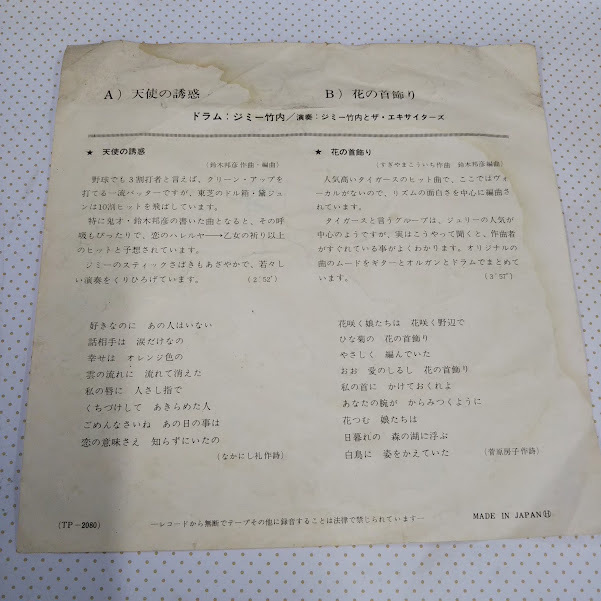 A) 天使の誘惑
B) 花の首飾り
ドラム：ジミー竹内／演奏：ジミー竹内とザ・エキサイターズ
★ 天使の誘惑
(鈴木邦彦作曲・編曲)
野球でも3割打者と言えば、クリーン・アップを
打てる一流バッターですが、東芝のドル箱・黛ジュ
ンは10割ヒットを飛ばしています。
特に鬼才・鈴木邦彦の書いた曲となると、その呼
吸もぴったりで、恋のハレルヤ──→乙女の祈り以上
のヒットと予想されています。
ジミーのスティックさばきもあざやかで、若々し
い演奏をくりひろげています。 (2′52″)
★ 花の首飾り
(すぎやまこういち作曲 鈴木邦彦編曲)
人気高いタイガースのヒット曲で、ここではヴォ
ーカルがないので、リズムの面白さを中心に編曲さ
れています。
タイガースと言うグループは、ジュリーの人気が
中心のようですが、実はこうやって聞くと、作曲者
がすぐれている事がよくわかります。オリジナルの
曲のムードをギターとオルガンとドラムでまとめて
います。 (3′37″)
好きなのに あの人はいない
話相手は 涙だけなの
幸せは オレンジ色の
雲の流れに 流れて消えた
私の唇に 人さし指で
くちづけして あきらめた人
ごめんなさいね あの日の事は
恋の意味さえ 知らずにいたの
(なかにし礼作詩)
花咲く娘たちは 花咲く野辺で
ひな菊の 花の首飾り
やさしく 編んでいた
おお 愛のしるし 花の首飾り
私の首に かけておくれよ
あなたの腕が からみつくように
花つむ 娘たちは
日暮れの 森の湖に浮ぶ
白鳥に 姿をかえていた
(菅原房子作詩)
(TP－2060)
―レコードから無断でテープその他に録音することは法律で禁じられています―
MADE IN JAPAN Ⓗ